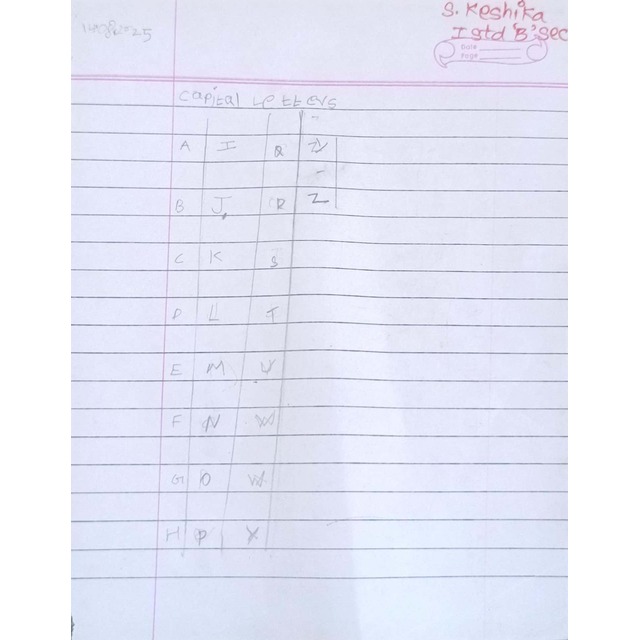 S. Keshika
I std 'B' Sec
Date
Page
Capital Letters
A I Q
B J R Z
C K S
D L T
E M U
F N W
G O W
H P X